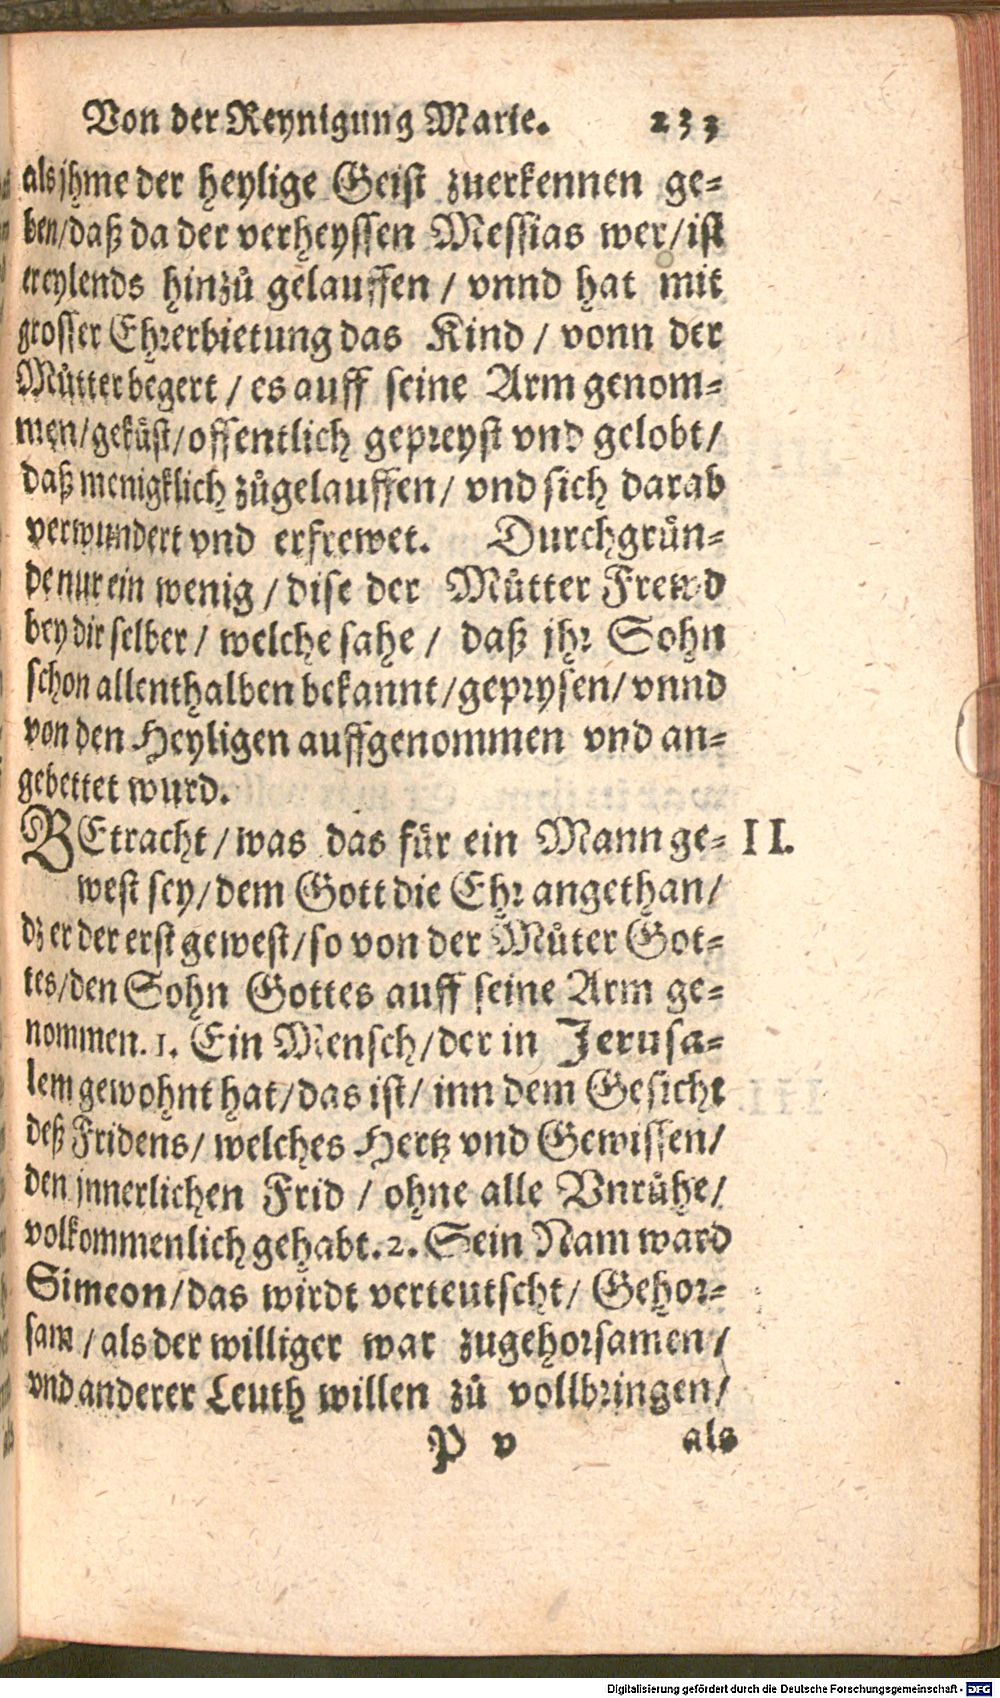 Von der Reynigung Marie. 233
als jhme der heylige Geist zuerkennen ge-
ben/daß da der verheyssen Messias wer/ist
ereylends hinzů gelauffen / vnnd hat mit
grosser Ehrerbietung das Kind / vonn der
Můtter begert / es auff seine Arm genom-
men/geküst/offentlich gepreyst vnd gelobt/
daß menigklich zůgelauffen/ vnd sich darab
verwundert vnd erfrewet. Durchgrün-
de nur ein wenig / dise der Můtter Frewd
bey dir selber / welche sahe / daß jhr Sohn
schon allenthalben bekannt/geprysen/vnnd
von den Heyligen auffgenommen vnd an-
gebettet wurd.
BEtracht/was das für ein Mann ge- II.
west sey/dem Gott die Ehr angethan/
dz er der erst gewest/so von der Můter Got-
tes/den Sohn Gottes auff seine Arm ge-
nommen. 1. Ein Mensch/der in Jerusa-
lem gewohnt hat/das ist/ inn dem Gesicht
deß Fridens/ welches Hertz vnd Gewissen/
den jnnerlichen Frid / ohne alle Vnrůhe/
volkommenlich gehabt. 2. Sein Nam ward
Simeon/das wirdt verteutscht/ Gehor-
sam / als der williger war zugehorsamen/
vnd anderer Leuth willen zů vollbringen/
P v als
Digitalisierung gefördert durch die Deutsche Forschungsgemeinschaft - DFG